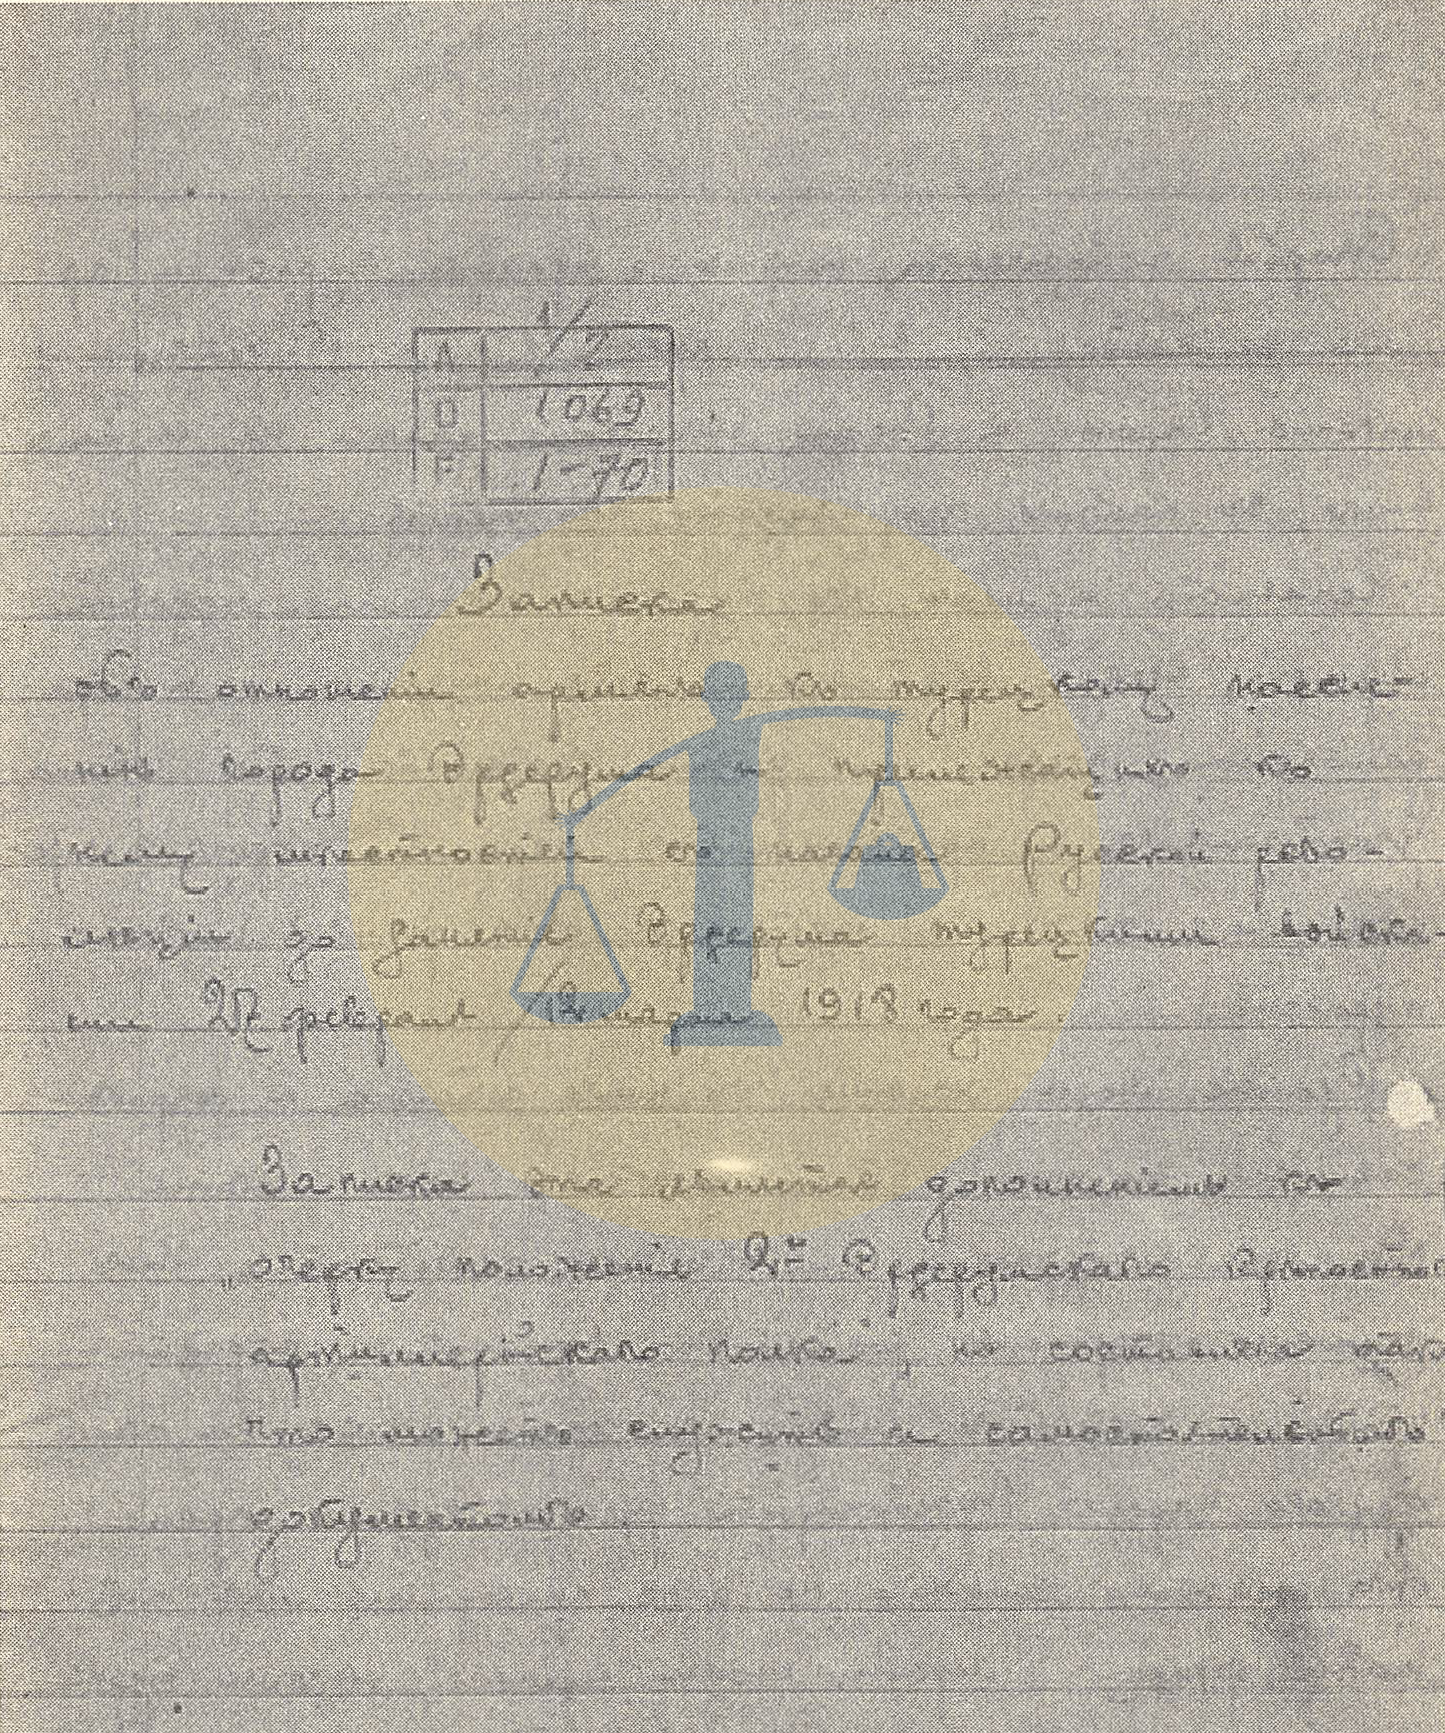 A 1/2
D 1069
F 1-70
Записка
объ отношеніи армянъ къ турецкому населе-
нію города Эрзерума и прилежащихъ къ
нему мѣстностей съ начала Русской рево-
люціи до занятія Эрзерума турецкими войска-
ми 27 февраля / 12 марта 1918 года.
Записка эта является дополненіемъ къ
очерку положенія 2го Эрзерумскаго Крѣпостно
артиллерійскаго полка, но составлена такъ
что можетъ служить и самостоятельнымъ
документомъ.